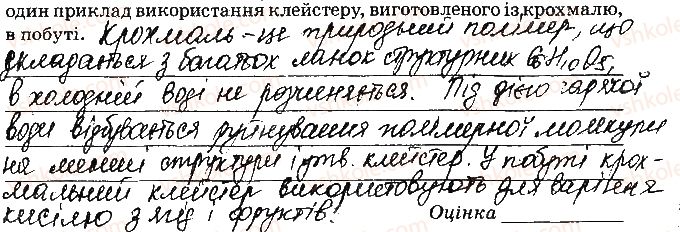 один приклад використання клейстеру, виготовленого із крохмалю,
в побуті. Крохмаль - це природний полімер, що
складається з багатьох ланок структурних C6H10O5,
в холодній воді не розчиняється. Під дією гарячої
води відбувається руйнування полімерної молекули
на менші структури і утв. клейстер. У побуті крох-
мальний клейстер використовують для варіння
кисілю з ягід і фруктів. Оцінка